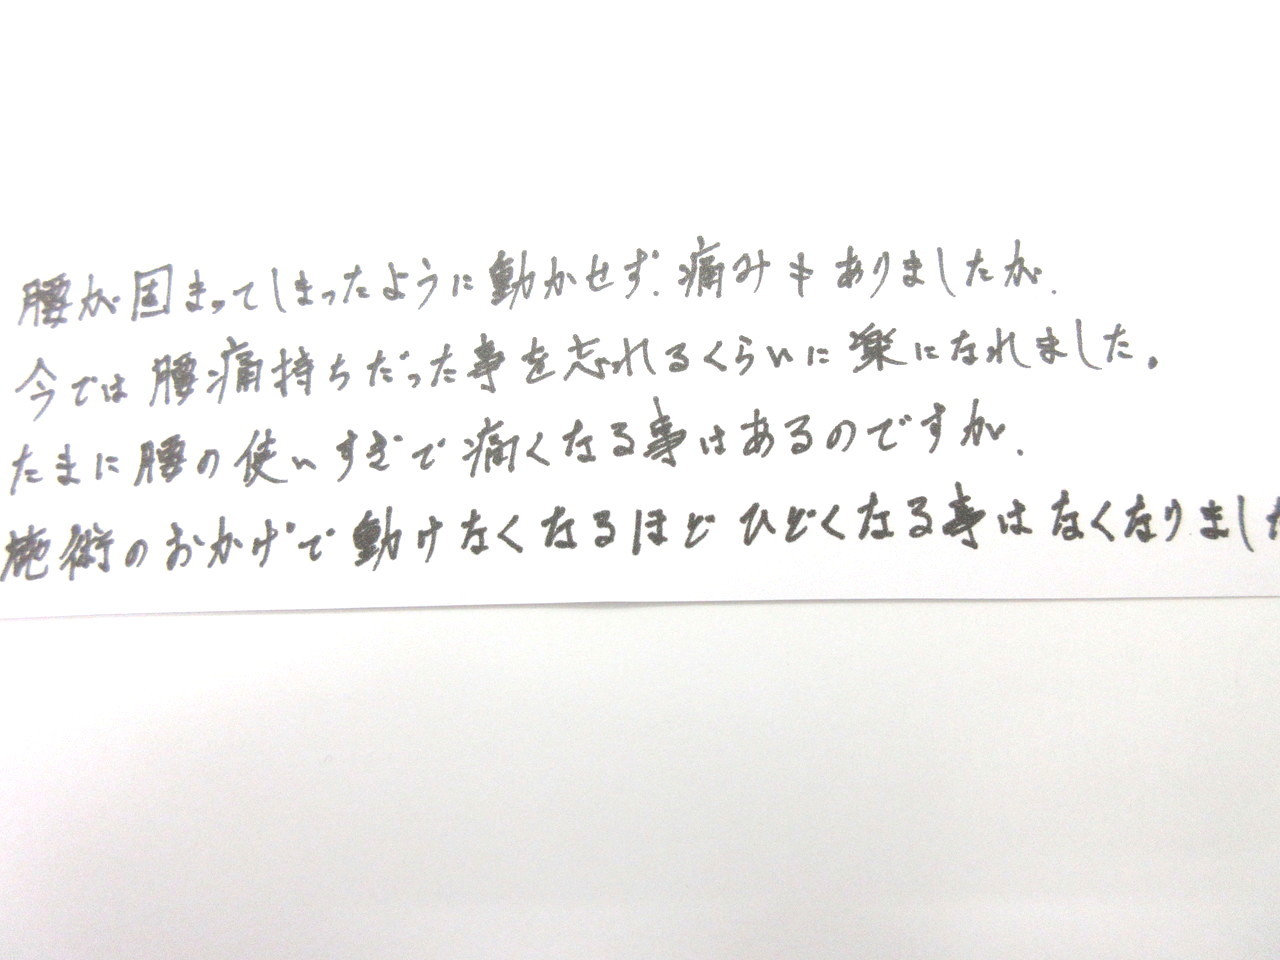 腰が固まってしまったように動かせず、痛みもありましたが、
今では腰痛持ちだった事を忘れるくらいに楽になれました。
たまに腰の使いすぎで痛くなる事はあるのですが、
施術のおかげで動けなくなるほどひどくなる事はなくなりました